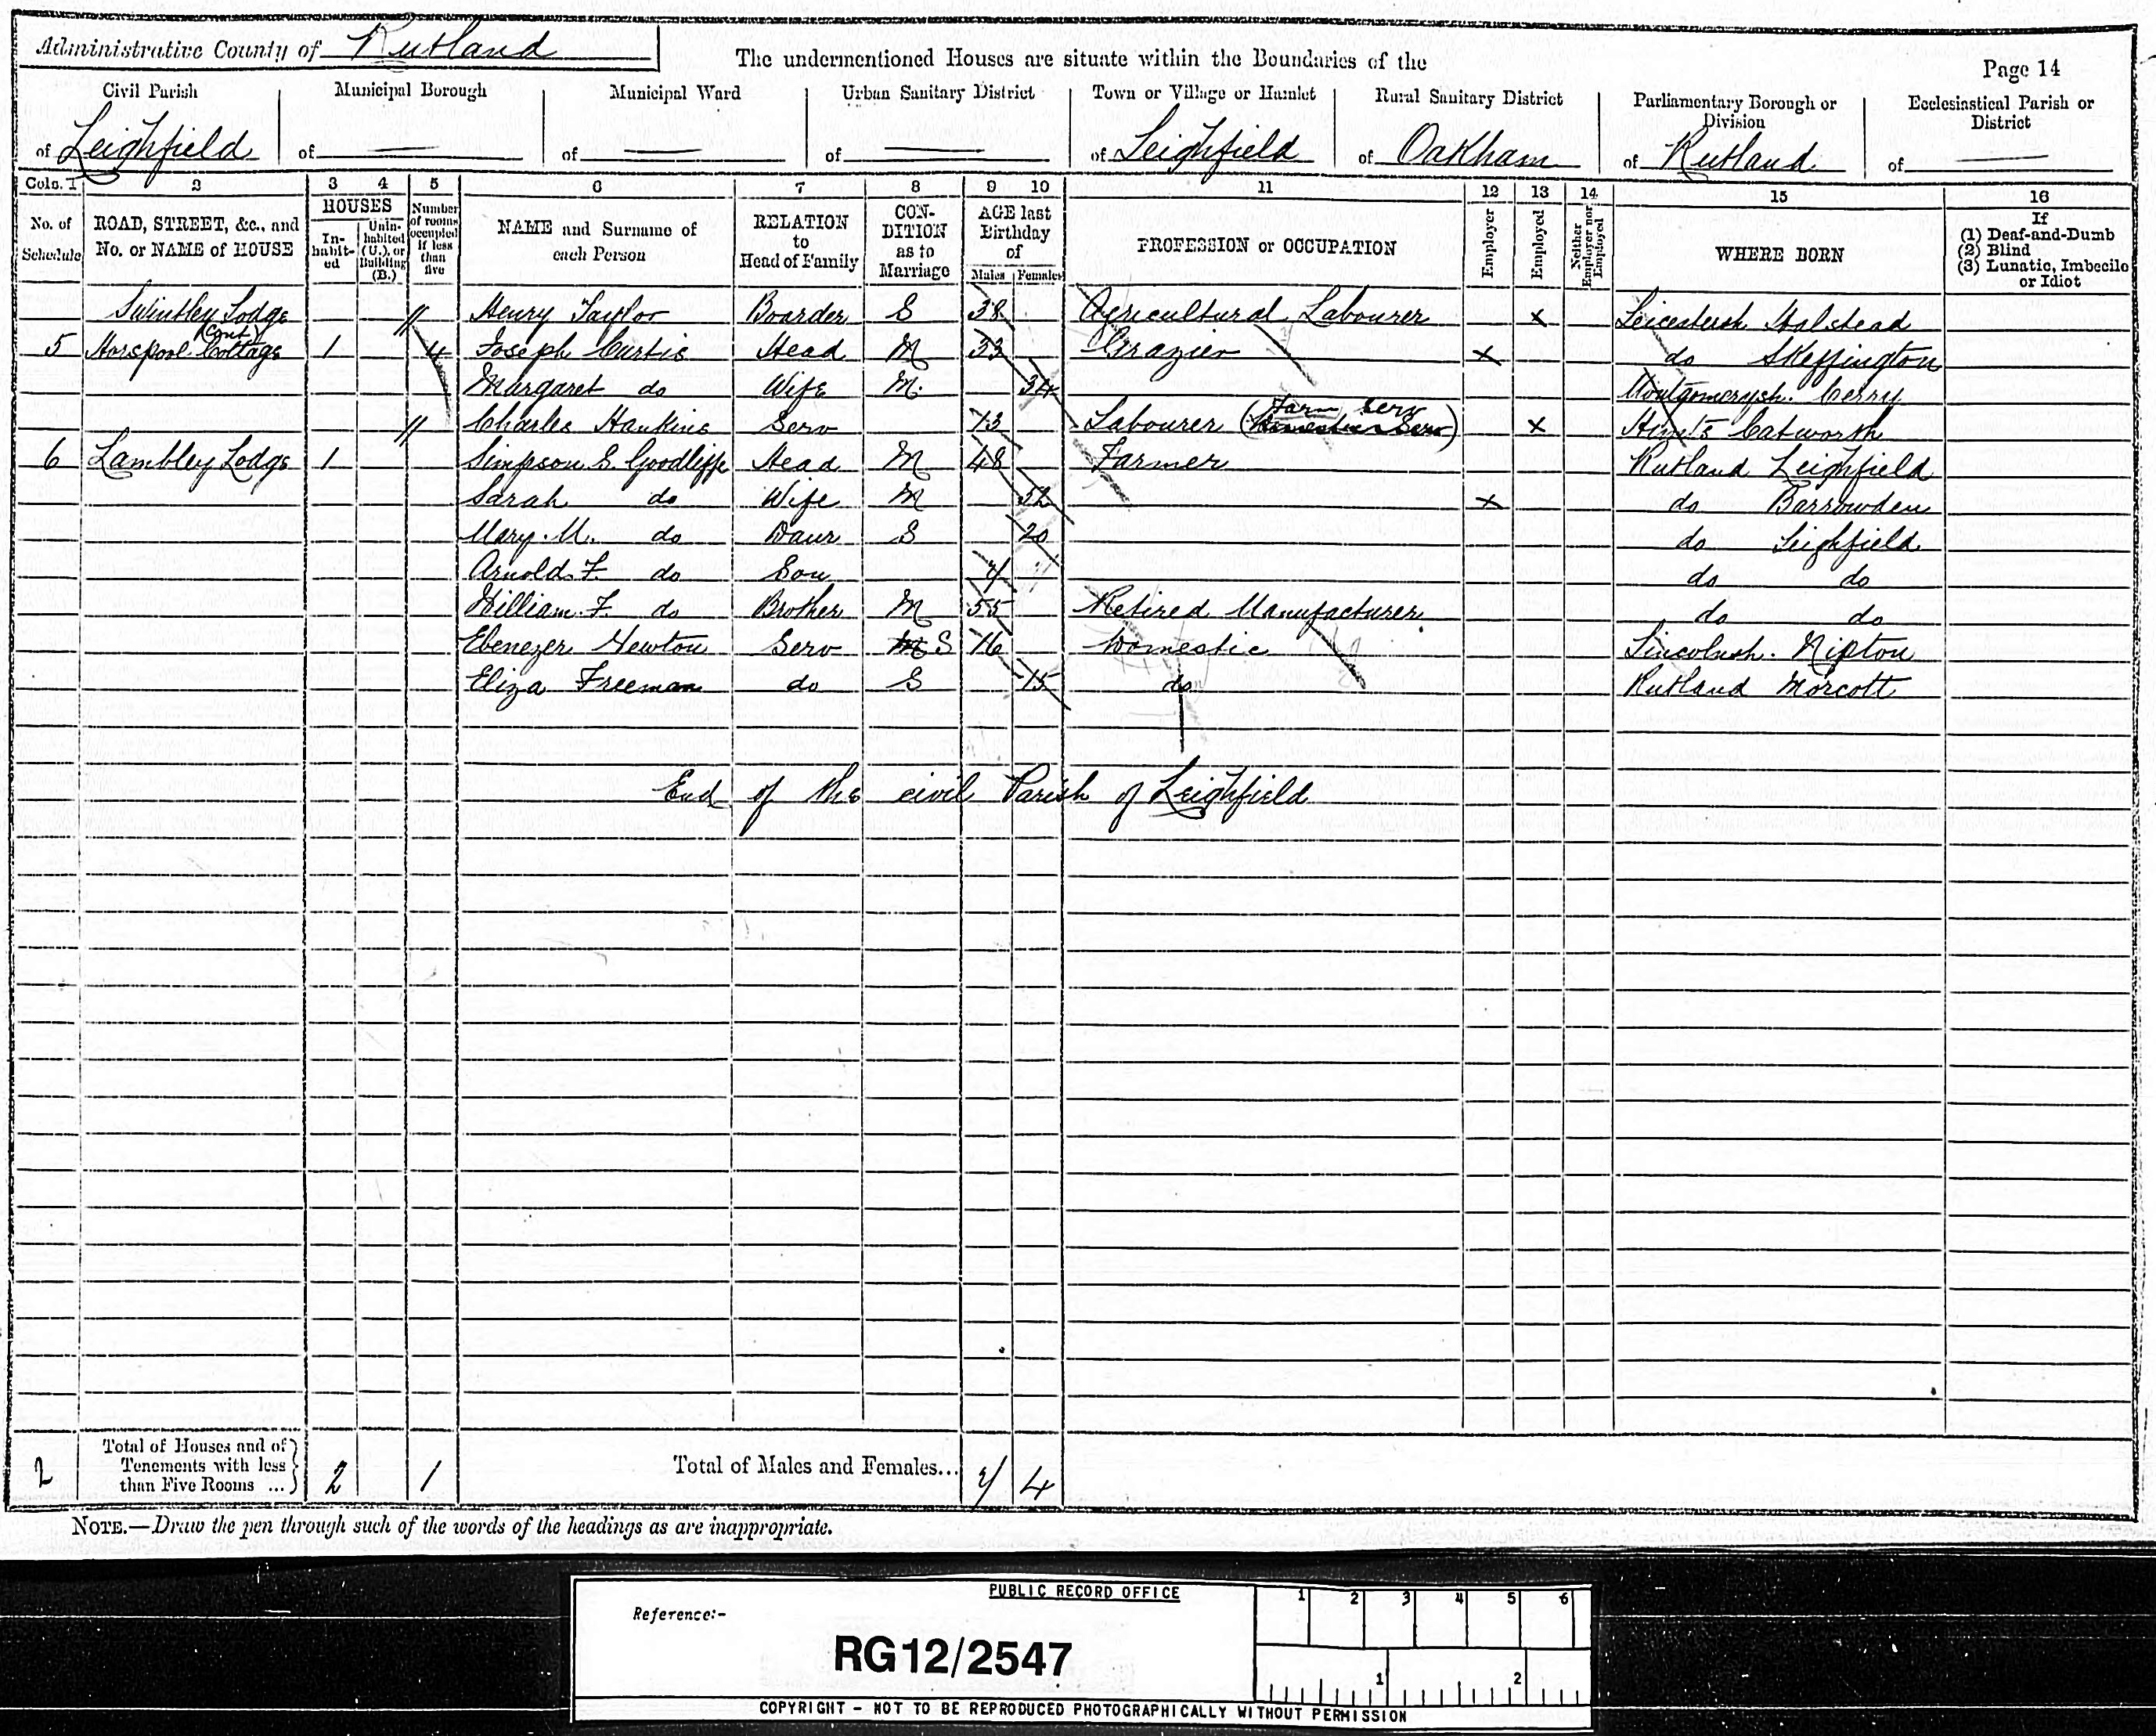 Administrative County of Rutland
The undermentioned Houses are situate within the Boundaries of the
Page 14
Civil Parish Municipal Borough Municipal Ward Urban Sanitary District Town or Village or Hamlet Rural Sanitary District Parliamentary Borough or Division Ecclesiastical Parish or District
of Leighfield of — of — of — of Leighfield of Oakham of Rutland of —
Cols. 1 2 3 4 5 6 7 8 9 10 11 12 13 14 15 16
No. of Schedule ROAD, STREET, &c., and No. or NAME of HOUSE HOUSES Inhabited Uninhabited (U.), or Building (B.) Number of rooms occupied if less than five NAME and Surname of each Person RELATION to Head of Family CONDITION as to Marriage AGE last Birthday of Males Females PROFESSION or OCCUPATION Employer Employed Neither Employer nor Employed WHERE BORN If (1) Deaf-and-Dumb (2) Blind (3) Lunatic, Imbecile or Idiot
Swintley Lodge (Cont) Henry Taylor Boarder S 38 Agricultural Labourer X Leicestersh Halstead
5 Horspool Cottage 1 4 Joseph Curtis Head M 33 Grazier X do Skeffington
Margaret do Wife M. 34 Montgomerysh. Cerry
Charles Hankins Serv 13 Labourer (Farm Serv Domestic Serv) X Hunts Catworth
6 Lambley Lodge 1 Simpson S. Goodliffe Head M 48 Farmer Rutland Leighfield
Sarah do Wife M 52 X do Barrowden
Mary. M. do Daur S 20 do Leighfield
Arnold F. do Son 7 do do
William F. do Brother M 55 Retired Manufacturer do do
Ebenezer Newton Serv M S 16 Domestic Lincolnsh. Nipton
Eliza Freeman do S 15 do Rutland Morcott
End of the civil Parish of Leighfield
2 Total of Houses and of Tenements with less than Five Rooms ... 2 1 Total of Males and Females... 7 4
NOTE.—Draw the pen through such of the words of the headings as are inappropriate.
PUBLIC RECORD OFFICE
1 2 3 4 5 6
Reference:-
RG12/2547
1 2
COPYRIGHT - NOT TO BE REPRODUCED PHOTOGRAPHICALLY WITHOUT PERMISSION